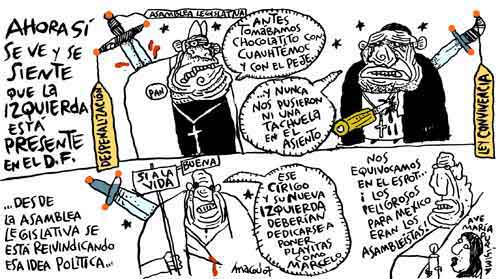 AHORA SÍ
SE VE Y SE
SIENTE
QUE LA
IZQUIERDA
ESTÁ
PRESENTE
EN EL D.F.
ASAMBLEA LEGISLATIVA
DESPENALIZACIÓN
PAN
ANTES
TOMÁBAMOS
CHOCOLATITO CON
CUAUHTÉMOC
Y CON EL PEJE
...Y NUNCA
NOS PUSIERON
NI UNA
TACHUELA
EN EL
ASIENTO
LEY CONVIVENCIA
...DESDE
LA ASAMBLEA
LEGISLATIVA SE
ESTÁ REIVINDICANDO
ESA IDEA POLÍTICA...
SI A LA
VIDA
BUENA
ESE
CÍRIGO
Y SU NUEVA
IZQUIERDA
DEBERÍAN
DEDICARSE A
PONER
PLAYITAS
COMO
MARCELO
NOS
EQUIVOCAMOS
EN EL ESPOT...
¡LOS
PELIGROSOS
PARA MÉXICO
ERAN LOS
ASAMBLEÍSTAS!
AVE
MARÍA